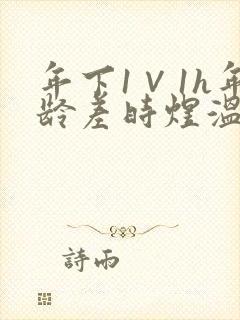 年下1V1h年
龄差时煜温
詩雨